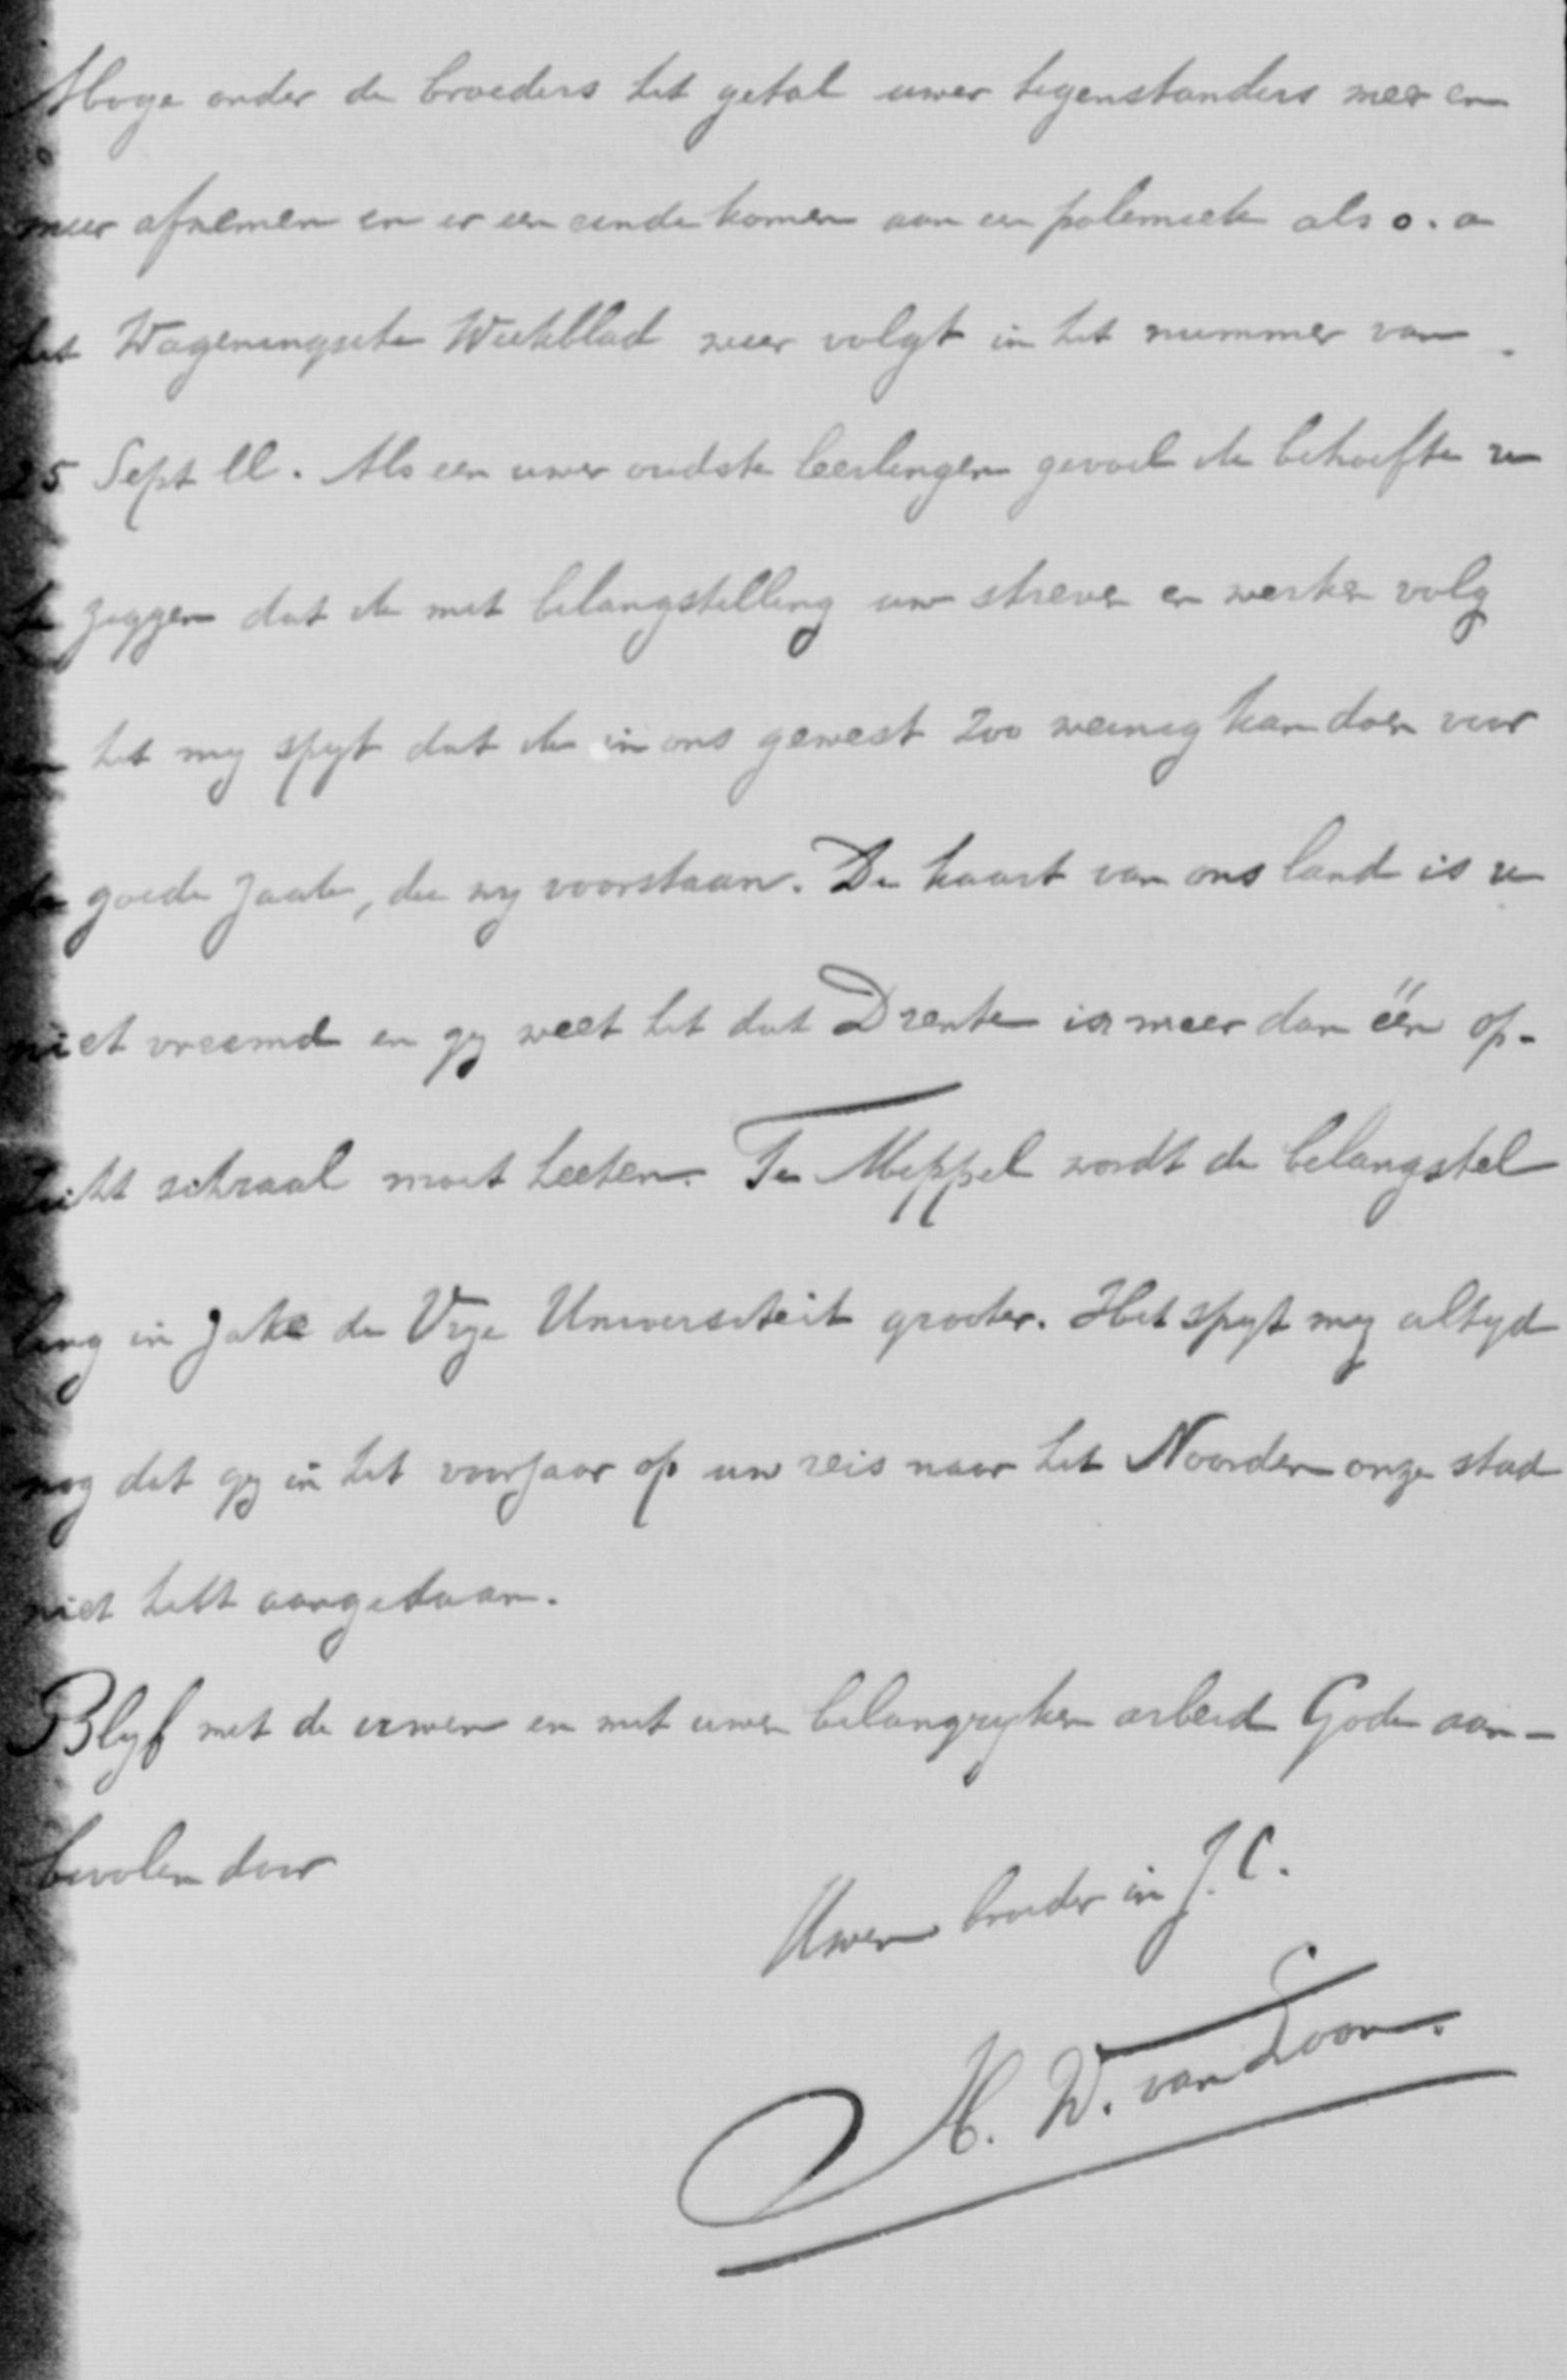 Moge onder de broeders het getal uwer tegenstanders meer en
meer afnemen en er een einde komen aan een polemiek als o. a
het Wageningsche Weekblad weer volgt in het nummer van
25 Sept ll. Als een uwer oudste leerlingen gevoel ik behoefte u
te zeggen dat ik met belangstelling uw streven en werken volg
en het my spyt dat ik in ons gewest zoo weinig kan doen voor
de goede zaak, die wy voorstaan. De kaart van ons land is u
niet vreemd en gy weet het dat Drente in meer dan één op-
zicht schraal moet heeten. Te Meppel wordt de belangstel
ling in zake de Vrye Universiteit grooter. Het spyt my altyd
nog dat gy in het voorjaar op uw reis naar het Noorden onze stad
niet hebt aangedaan.
Blyf met de uwen en met uwen belangryken arbeid Gode aan-
bevolen door
Uwen broeder in J. C.
H. W. van Loon.